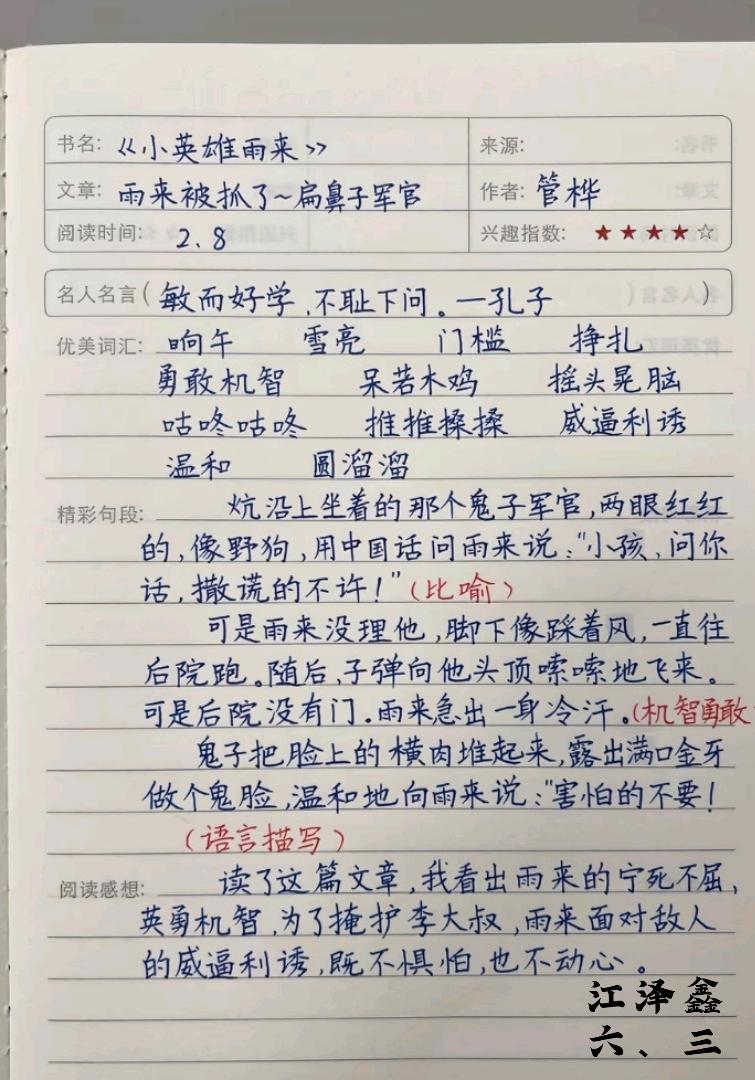 书名: 《小英雄雨来》 来源:
文章: 雨来被抓了~扁鼻子军官 作者: 管桦
阅读时间: 2、8 兴趣指数: ★★★★☆
名人名言( 敏而好学,不耻下问。—孔子 )
优美词汇: 响午 雪亮 门槛 挣扎
勇敢机智 呆若木鸡 摇头晃脑
咕咚咕咚 推推搡搡 威逼利诱
温和 圆溜溜
精彩句段: 炕沿上坐着的那个鬼子军官,两眼红红
的,像野狗,用中国话问雨来说:“小孩,问你
话,撒谎的不许!”(比喻)
可是雨来没理他,脚下像踩着风,一直往
后院跑。随后,子弹向他头顶嗦嗦地飞来。
可是后院没有门.雨来急出一身冷汗。(机智勇敢
鬼子把脸上的横肉堆起来,露出满口金牙
做个鬼脸,温和地向雨来说:“害怕的不要!
(语言描写)
阅读感想: 读了这篇文章,我看出雨来的宁死不屈,
英勇机智,为了掩护李大叔,雨来面对敌人
的威逼利诱,既不惧怕,也不动心。
江泽鑫
六、三